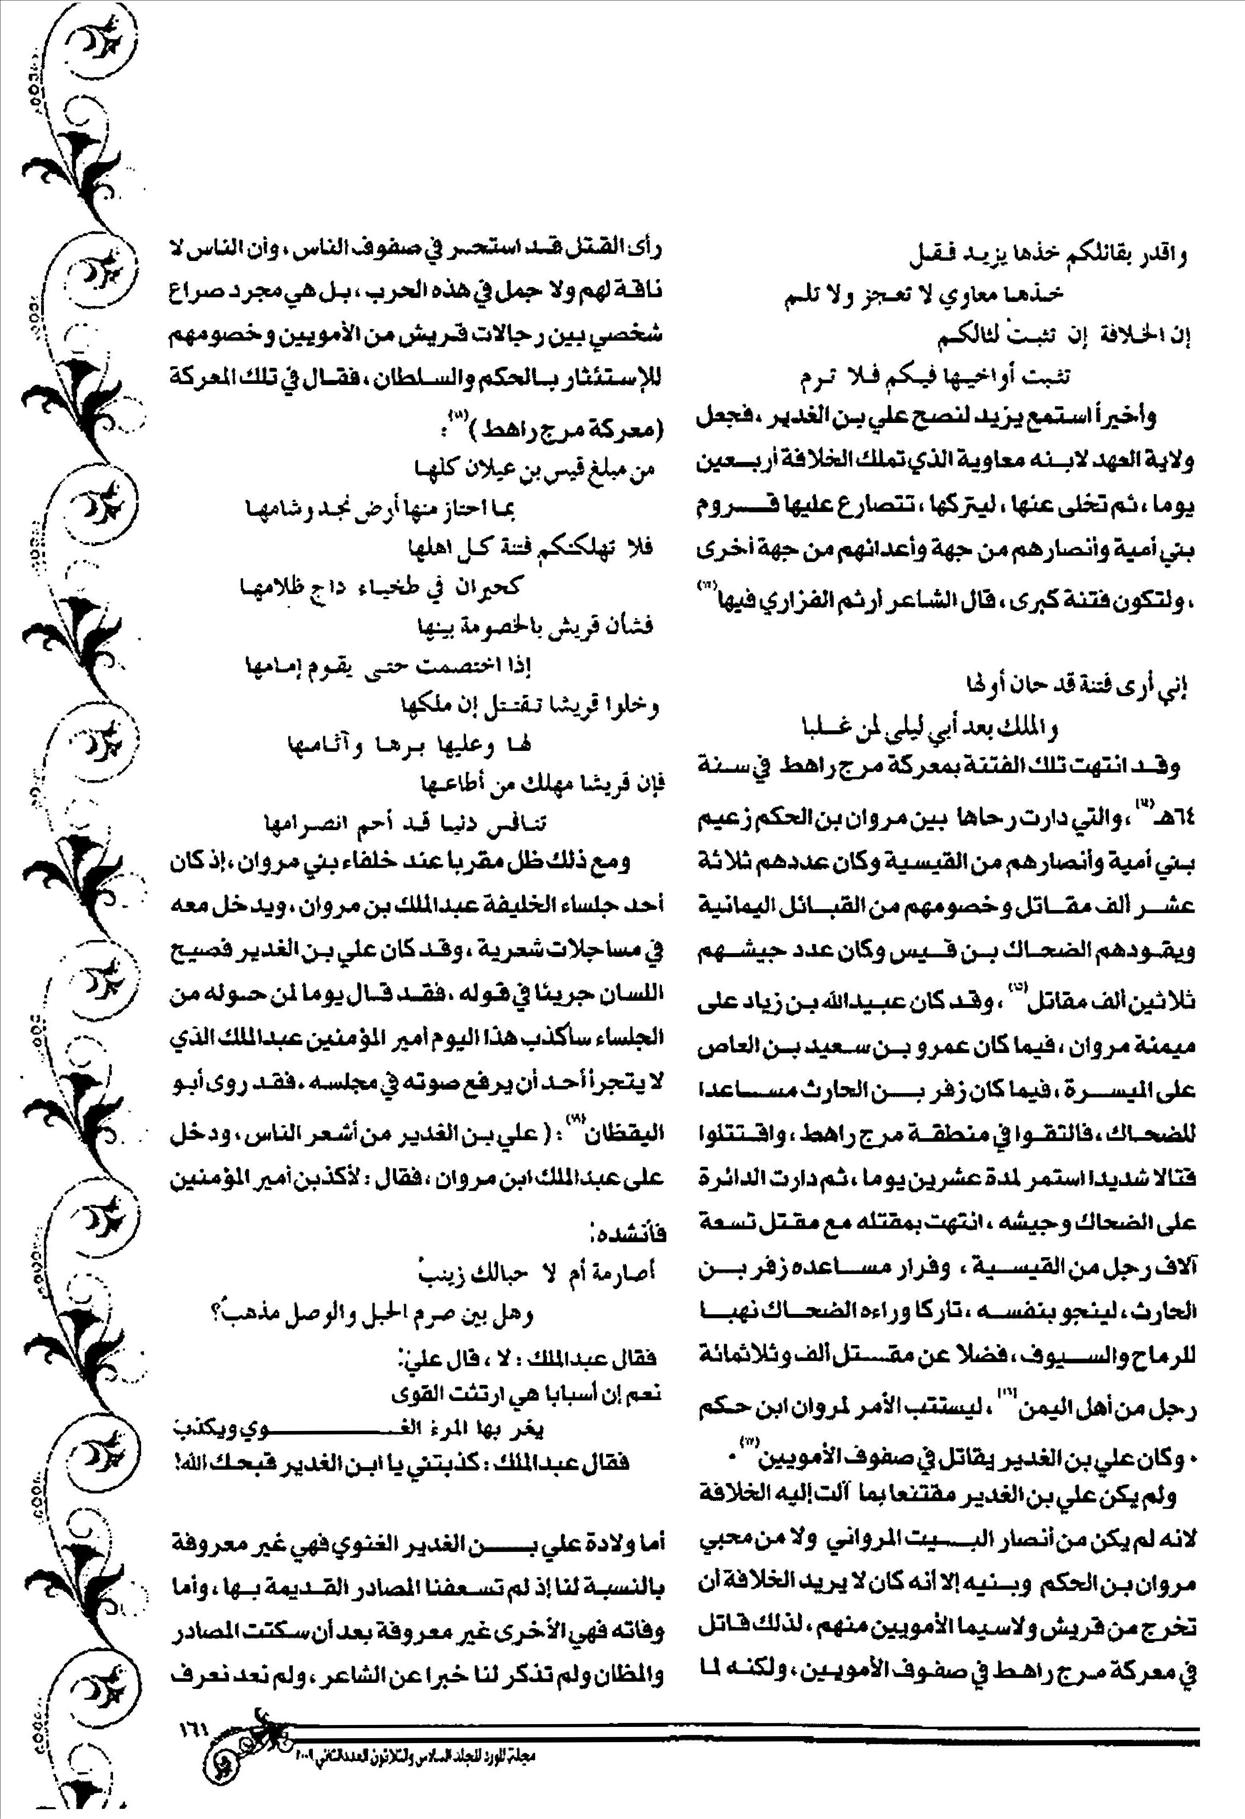 واقدر بقائلكم خذها يزيد فقل
خذها معاوي لا تعجز ولا تلم
إن الخلافة إن تثبت لثالكم
تثبت أواخيها فيكم فلا ترم
وأخيراً استمع يزيد لنصح علي بن الغدير ، فجعل
ولاية العهد لابنه معاوية الذي تملك الخلافة أربعين
يوما ، ثم تخلى عنها ، ليتركها ، تتصارع عليها قروم
بني أمية وأنصارهم من جهة وأعدائهم من جهة أخرى
، ولتكون فتنة كبرى ، قال الشاعر أرثم الفزاري فيها(١٣)
إني أرى فتنة قد حان أولها
والملك بعد أبي ليلى لمن غلبا
وقد انتهت تلك الفتنة بمعركة مرج راهط في سنة
٦٤هـ(١٤) ، والتي دارت رحاها بين مروان بن الحكم زعيم
بني أمية وأنصارهم من القيسية وكان عددهم ثلاثة
عشر ألف مقاتل وخصومهم من القبائل اليمانية
ويقودهم الضحاك بن قيس وكان عدد جيشهم
ثلاثين ألف مقاتل(١٥) ، وقد كان عبيدالله بن زياد على
ميمنة مروان ، فيما كان عمرو بن سعيد بن العاص
على الميسرة ، فيما كان زفر بن الحارث مساعدا
للضحاك ، فالتقوا في منطقة مرج راهط ، واقتتلوا
قتالا شديدا استمر لمدة عشرين يوما ، ثم دارت الدائرة
على الضحاك وجيشه ، انتهت بمقتله مع مقتل تسعة
آلاف رجل من القيسية ، وفرار مساعده زفر بن
الحارث ، لينجو بنفسه ، تاركا وراءه الضحاك نهبا
للرماح والسيوف ، فضلا عن مقتل ألف وثلاثمائة
رجل من أهل اليمن(١٦) ، ليستتب الأمر لمروان ابن حكم
. وكان علي بن الغدير يقاتل في صفوف الأمويين(١٧) .
ولم يكن علي بن الغدير مقتنعا بما آلت إليه الخلافة
لانه لم يكن من أنصار البيت المرواني ولا من محبي
مروان بن الحكم وبنيه إلا أنه كان لا يريد الخلافة أن
تخرج من قريش ولاسيما الأمويين منهم ، لذلك قاتل
في معركة مرج راهط في صفوف الأمويين ، ولكنه لما
رأى القتل قد استحر في صفوف الناس ، وأن الناس لا
ناقة لهم ولا جمل في هذه الحرب ، بل هي مجرد صراع
شخصي بين رجالات قريش من الأمويين وخصومهم
للإستئثار بالحكم والسلطان ، فقال في تلك المعركة
(معركة مرج راهط)(١٨) :
من مبلغ قيس بن عيلان كلها
بما احتاز منها أرض نجد وشامها
فلا تهلكنكم فتنة كل اهلها
كحيران في طخياء داج ظلامها
فشأن قريش بالخصومة بينها
إذا اختصمت حتى يقوم إمامها
وخلوا قريشا تقتتل إن ملكها
لها وعليها برها وآثامها
فإن قريشا مهلك من أطاعها
تنافس دنيا قد أحم انصرامها
ومع ذلك ظل مقربا عند خلفاء بني مروان ، إذ كان
أحد جلساء الخليفة عبدالملك بن مروان ، ويدخل معه
في مساجلات شعرية ، وقد كان علي بن الغدير فصيح
اللسان جريئا في قوله ، فقد قال يوما لمن حوله من
الجلساء سأكذب هذا اليوم أمير المؤمنين عبدالملك الذي
لا يتجرأ أحد أن يرفع صوته في مجلسه . فقد روى أبو
اليقظان(١٩) : ( علي بن الغدير من أشعر الناس ، ودخل
على عبدالملك ابن مروان ، فقال : لأكذبن أمير المؤمنين
فأنشده:
أصارمة أم لا حبالك زينبُ
وهل بين صرم الحبل والوصل مذهبُ؟
فقال عبدالملك : لا ، قال عليّ:
نعم إن أسبابا هي ارتثت القوى
يغر بها المرء الغـوي ويكذب
فقال عبدالملك : كذبتني يا ابن الغدير قبحك الله!
أما ولادة علي بن الغدير الغنوي فهي غير معروفة
بالنسبة لنا إذ لم تسعفنا المصادر القديمة بها ، وأما
وفاته فهي الأخرى غير معروفة بعد أن سكتت المصادر
والمظان ولم تذكر لنا خبرا عن الشاعر ، ولم نعد نعرف
١٦١
مجلة المورد المجلد السادس والثلاثون العدد الثاني ٢٠٠٩